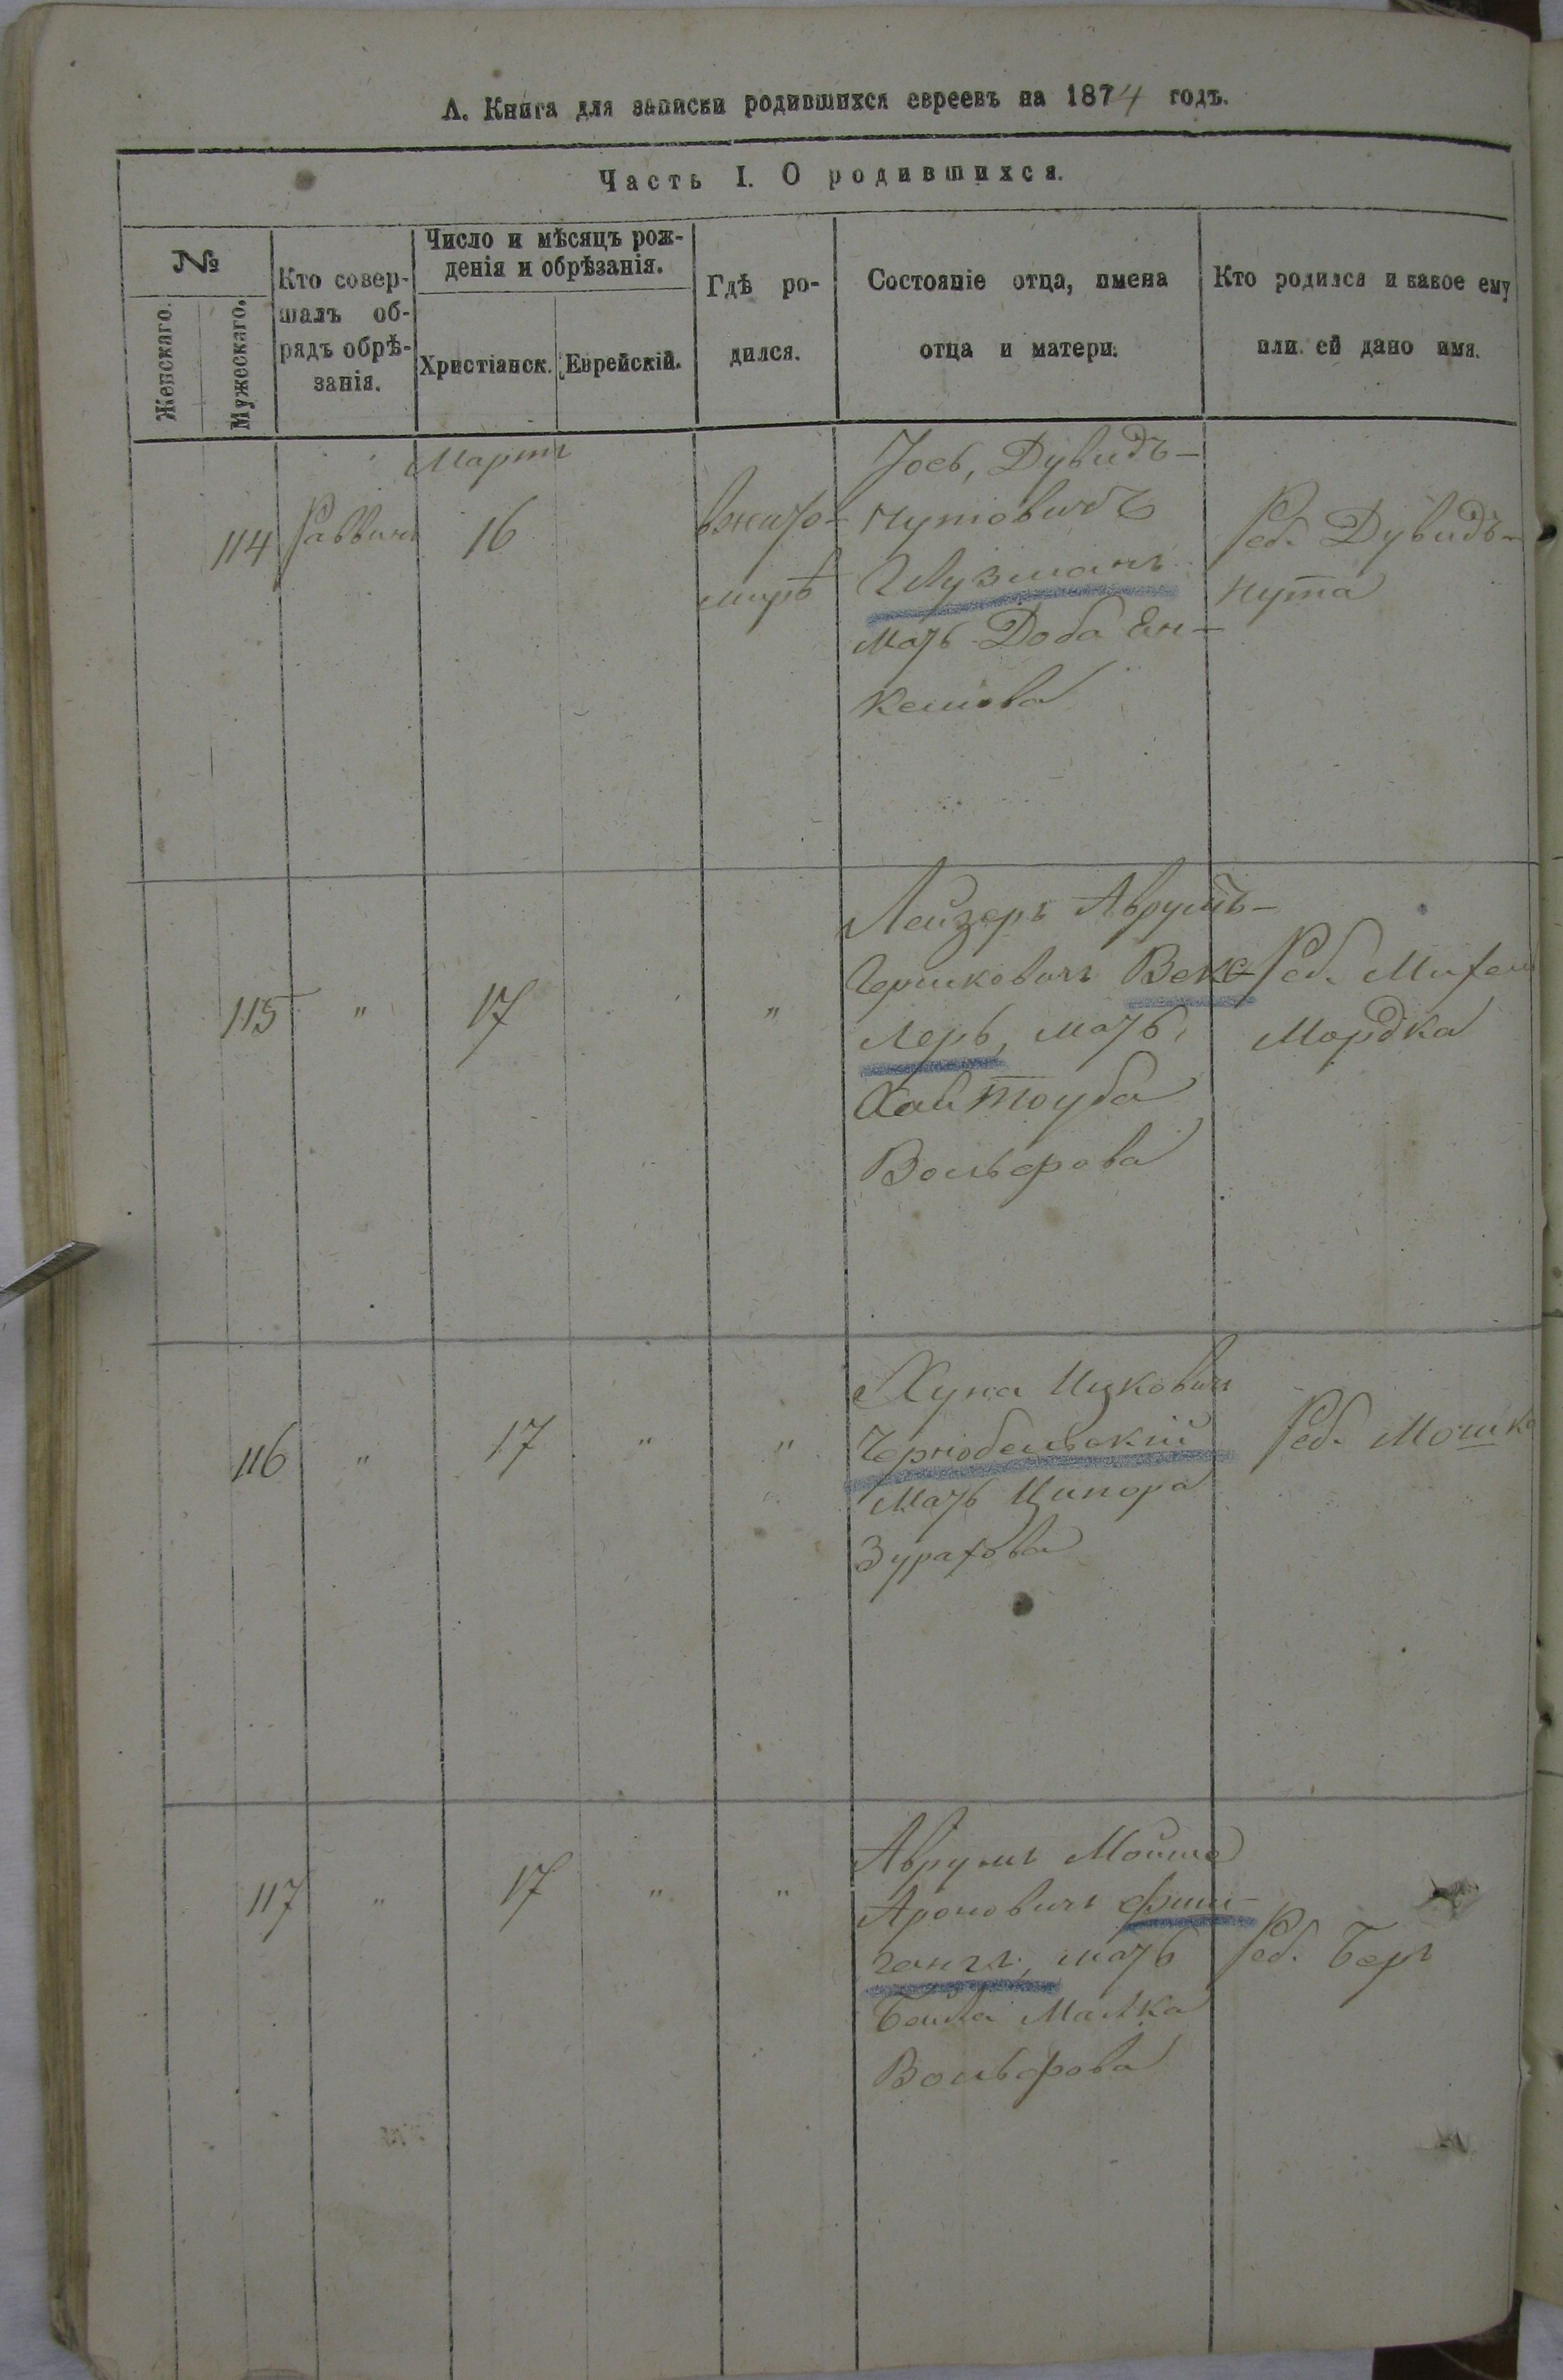 А. Книга для записки родившихся евреевъ на 1874 годъ.
Часть I. О родившихся.
№
Женскаго.
Мужескаго.
Кто совер-
шалъ об-
рядъ обрѣ-
занія.
Число и мѣсяцъ рож-
денія и обрѣзанія.
Христіанск.
Еврейскій.
Гдѣ ро-
дился.
Состояніе отца, имена
отца и матери.
Кто родился и какое ему
или ей дано имя.
Мартъ
114
Раввинъ
16
вжито-
мирѣ
Іось, Дувидъ-
Нутовичъ
мать Доба Ен-
келіова
Реб. Дувидъ-
Нута
115
"
17
"
Лейзеръ Аврумъ-
Гершковичъ Векс-
леръ, мать,
Хая Тоуба
Вольфова
Реб. Михель
Мордка
116
"
17
"
"
Хуна Ицковичъ
Чернобельскій
мать Ципора
Зурахова
Реб. Мошко
117
"
17
"
"
Аврумъ Мойше
Ароновичъ
мать
Бейла Малка
Вольфова
Реб. Беръ